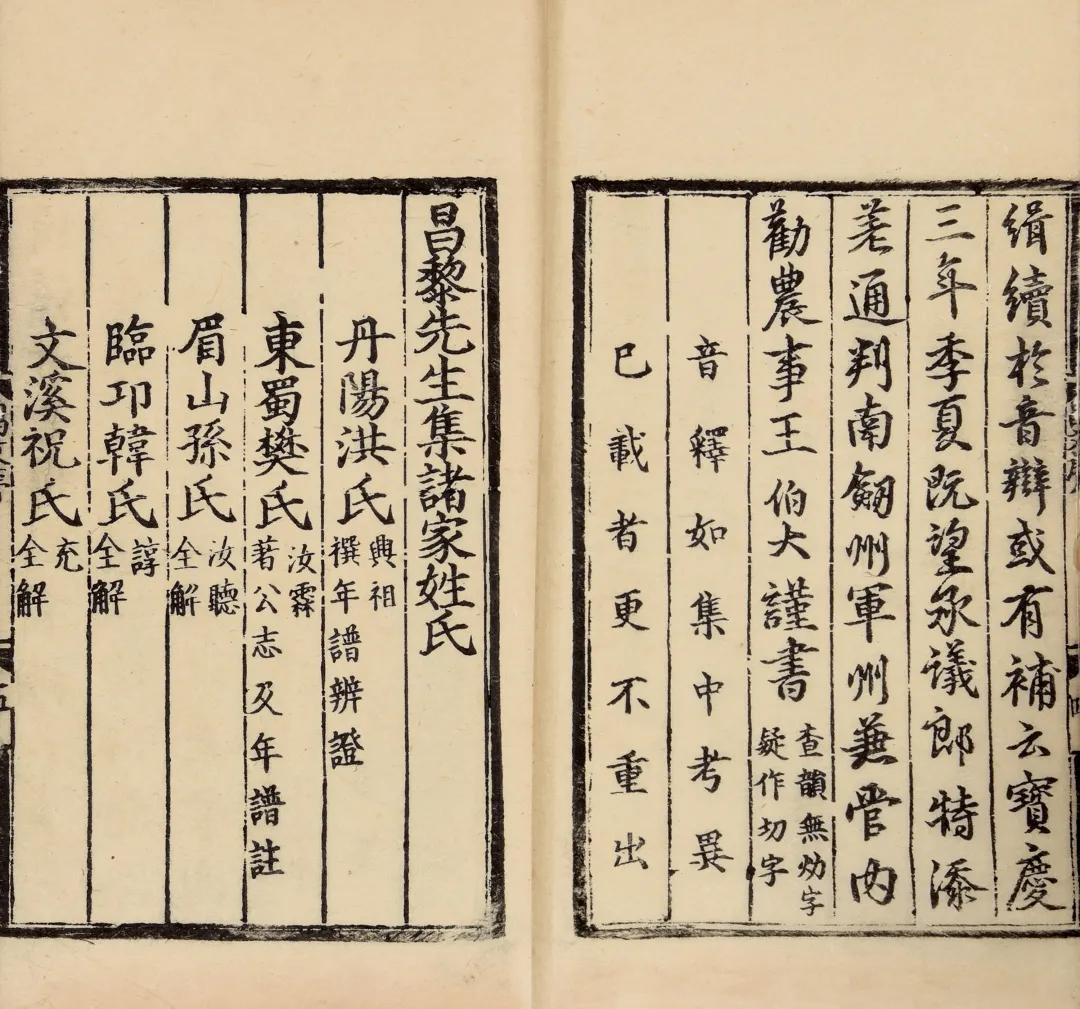 緝續於音辯或有補云寶慶
三年季夏旣望承議郎特添
差通判南劒州軍州兼管內
勸農事王伯大謹書
查韻無㓜字
疑作切字
音釋如集中考異
已載者更不重出
昌黎先生集諸家姓氏
丹陽洪氏
興祖
撰年譜辨證
東蜀樊氏
汝霖
著公志及年譜註
眉山孫氏
汝聽
全解
臨邛韓氏
諄
全解
文溪祝氏
充
全解